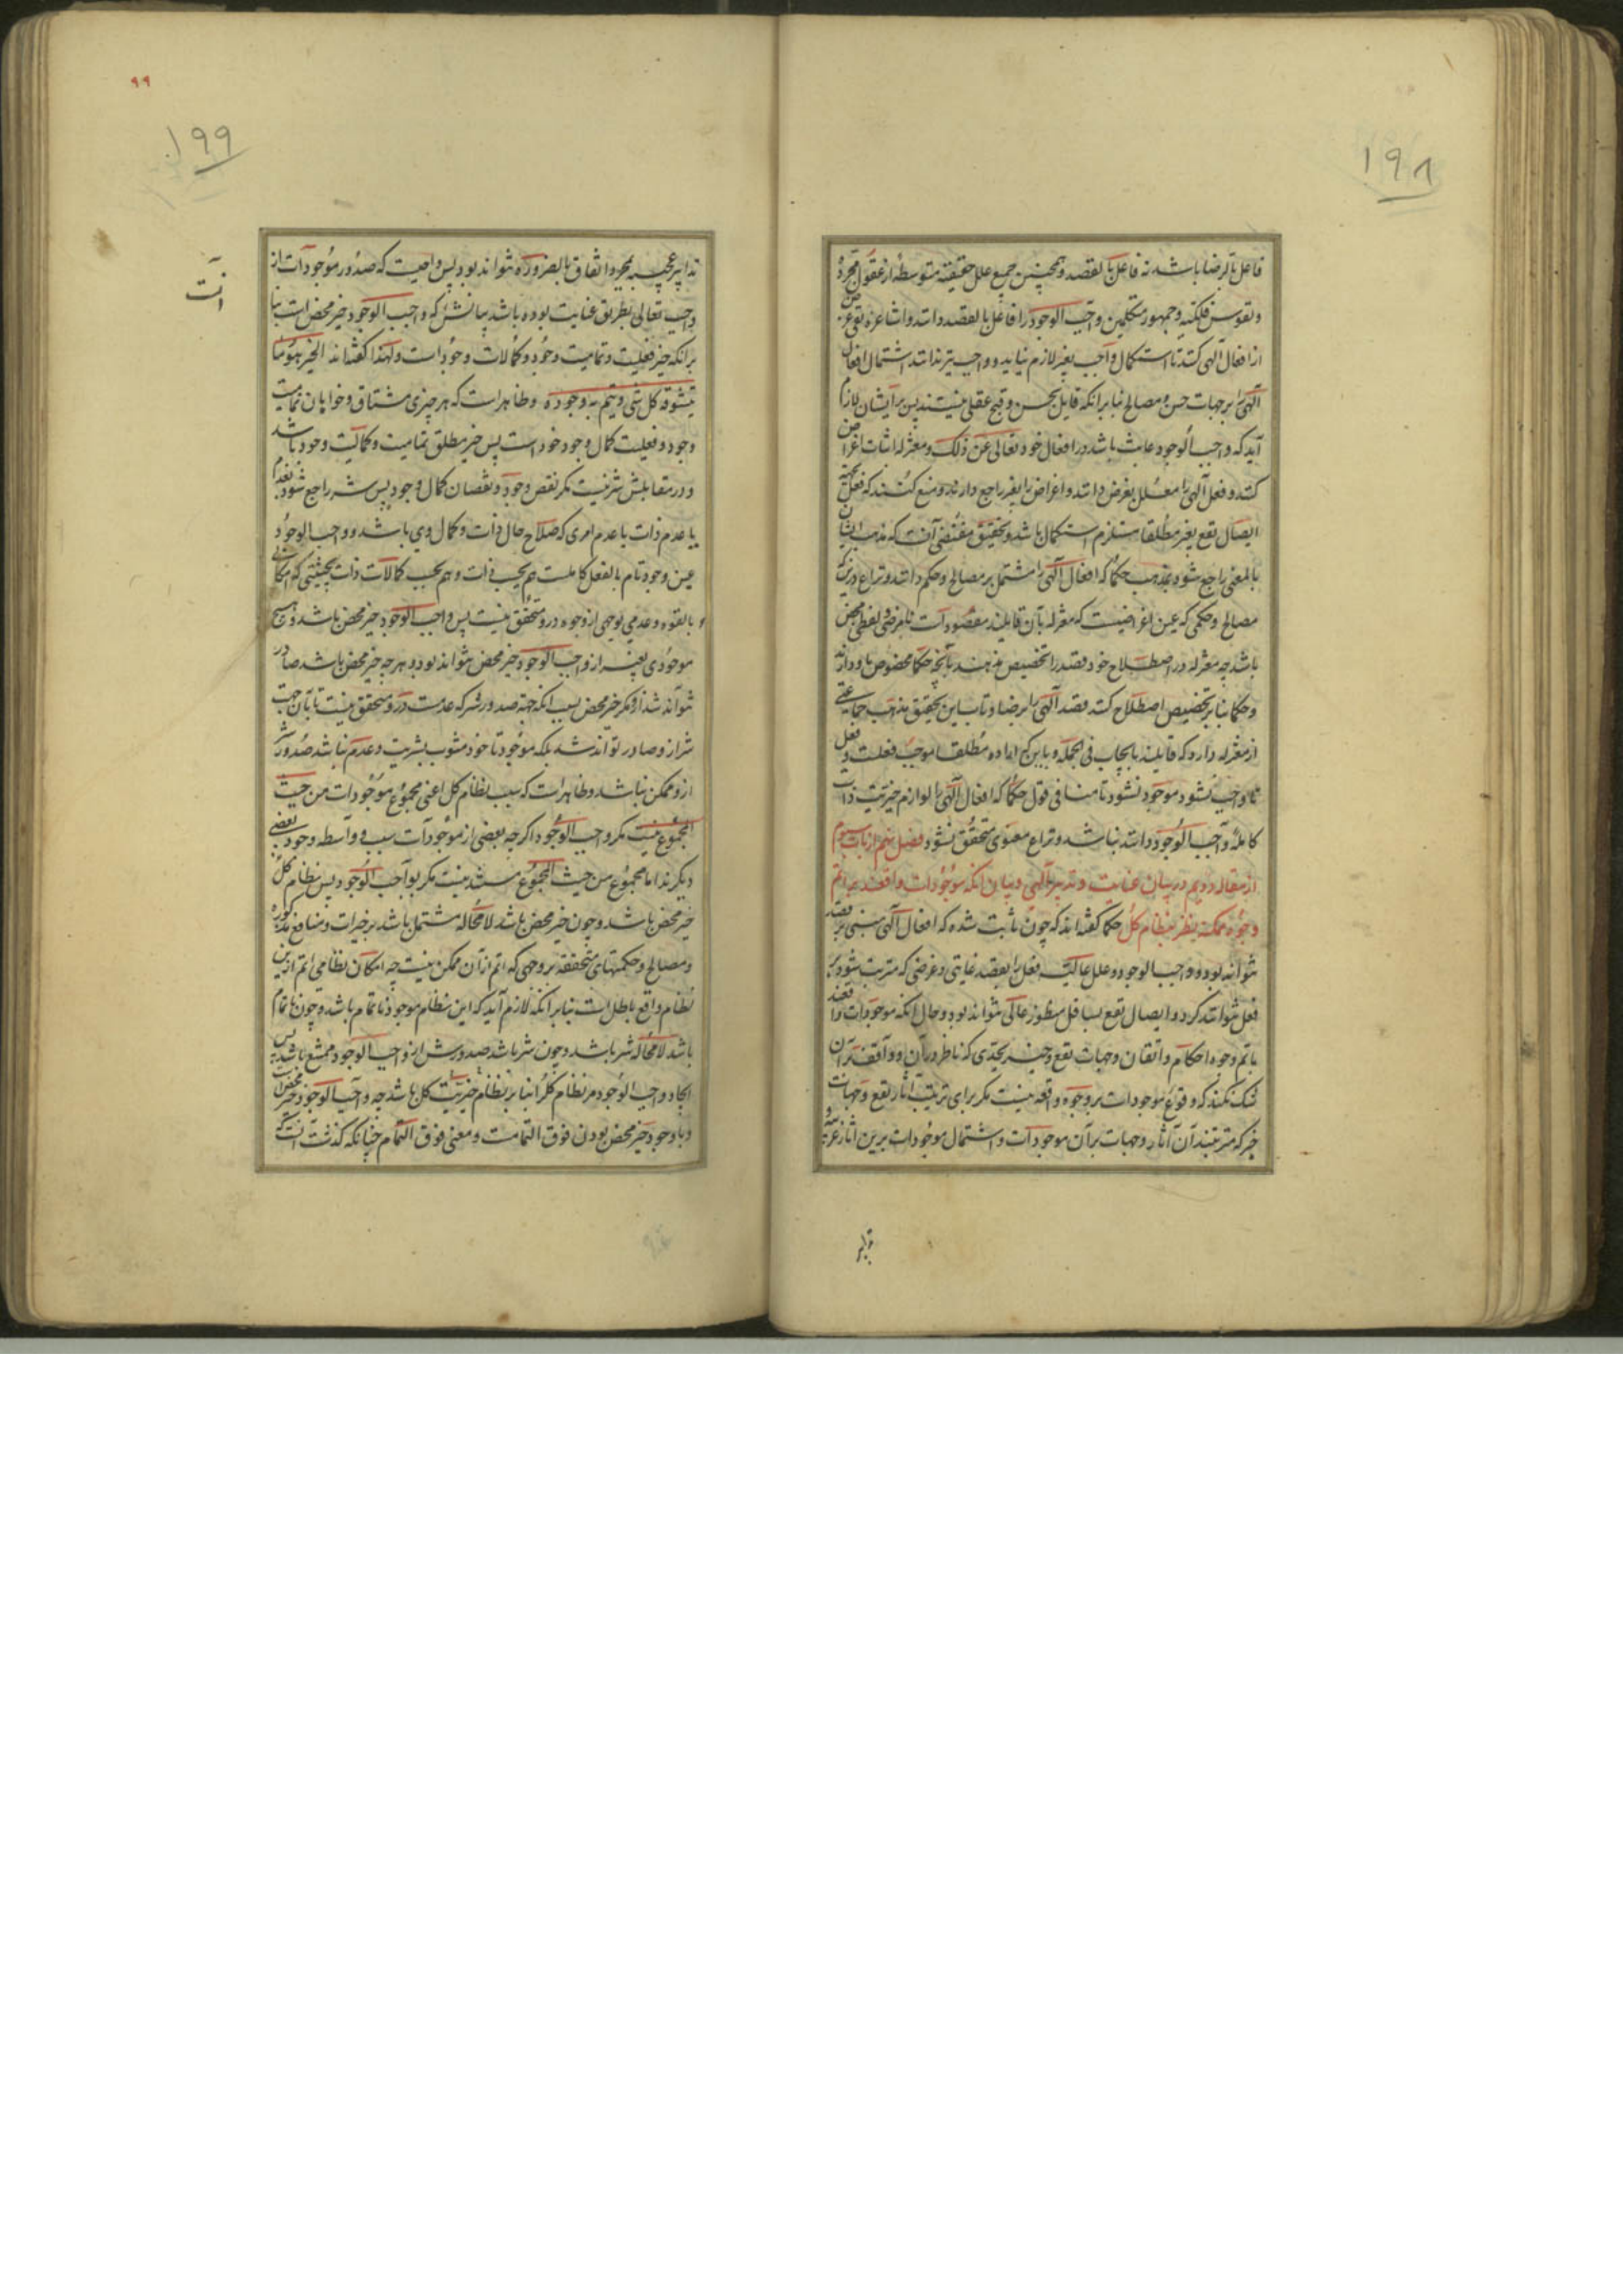 ۱۹۸
فاعل بالرضا باشد نه فاعل بالقصد و همچنین جمیع علل حقیقیه متوسطه از عقول مجرده
و نفوس فلکیه و جمهور متکلمین واجب الوجود را فاعل بالقصد دانند و اشاعره نفی غرض
از افعال الهی کنند تا استکمال واجب بغیر لازم نیاید و واجب نیز ندانند اشتمال افعال
الهی را بر جهات حسن و مصالح بنا بر انکه قایل بحسن و قبح عقلی نیستند پس بر ایشان لازم
آید که واجب الوجود عابث باشد در افعال خود تعالی عن ذلک و معتزله اثبات اغراض
کنند و فعل الهی را معلل بغرض دانند و اغراض را بغیر راجع دارند و منع کنند که فعل بجهة
ایصال نفع بغیر مطلقا مستلزم استکمال باشد و تحقیق مقتضی آنست که مذهب ایشان
بالمعنی راجع شود بمذهب حکما که افعال الهی را مشتمل بر مصالح و حکم دانند و نزاع درینکه
مصالح و حکمی که عین اغراضیست که معتزله بآن قایلند مقصود است نا مرضی و لفظی محض
باشد چه معتزله در اصطلاح خود قصد را تخصیص ندهند بآنچه حکما مخصوص باو دارند
و حکما بنا بر تخصیص اصطلاح کنند قصد الهی را برضا و تاب این تحقیق مذهب جماعتی
از معتزله دارد که قایلند بایجاب فی الجمله و باین که اراده مطلقا موجب فعلست و فعل
تا واجب نشود موجود نشود تا منافی قول حکما که افعال الهی را لوازم خیریت ذات
کامله واجب الوجود دانند نباشد و نزاع معنوی متحقق نشود فصل نهم از باب سیوم
از مقاله دویم در بیان عنایت و تدبیر الهی و بیان انکه موجودات واقعند بر اتم
وجوه ممکنه بنظر بنظام کل حکما گفته اند که چون ثابت شده که افعال الهی مبنی بر قصد
نتواند بود و واجب الوجود و علل عالیه فعل را بقصد غایتی و غرضی که مترتب شود بر
فعل نتوانند کرد و ایصال نفع بسافل منظور عالی نتواند بود و حال انکه موجودات واقعند
باتم وجوه احکام و اتقان و جهات نفع و خیر بحدی که ناظر در آن و واقف بر آن
شک نکند که وقوع موجودات بر وجوه واقعه نیست مکر برای ترتیب آثار نفع و جهات
خیر که مترتبند آن آثار و جهات بر آن موجودات و اشتمال موجودات برین آثار غریبه و
تدابیر
۹۹
۱۹۹
تدابیر عجیبه بمجرد اتفاق بالضروره نتواند بود پس واجبست که صدور موجودات از
واجب تعالی بطریق عنایت بوده باشد بیانش که واجب الوجود خیر محض است بنا
برانکه خیر فعلیت و تمامیت وجود و کمالات وجود است ولهذا گفته اند الخیر هو ما
یتشوقه کل شی و یتم به وجوده و ظاهر است که هر چیزی مشتاق و خواهان تمامیت
وجود و فعلیت کمال وجود خود است پس خیر مطلق تمامیت و کمالیت وجود باشد
و در مقابلش شر نیست مکر نقص وجود و نقصان کمال وجود پس شر راجع شود بعدم
یا عدم ذات یا عدم امری که صلاح حال ذات و کمال وی باشد و واجب الوجود
عین وجود تام بالفعل کاملست هم بحسب ذات و هم بحسب کمالات ذات بحیثیتی که امکانی
بالقوه و عدمی بوجهی از وجوه درو متحقق نیست پس واجب الوجود خیر محض باشد و هیچ
موجودی بغیر از واجب الوجود خیر محض نتواند بود و هر چه خیر محض باشد صادر
نتواند شد ازو مکر خیر محض بسبب انکه جهة صدور شر که عدمست درو متحقق نیست تا بآن جهت
شر ازو صادر تواند شد بلکه موجود تا خود مشوب بشریت و عدم نباشد صدور شر
ازو ممکن نباشد و ظاهر است که سبب نظام کل اعنی مجموع موجودات من حیث
المجموع نیست مکر واجب الوجود اکر چه بعضی از موجودات سبب و واسطه وجود بعضی
دیکرند اما مجموع من حیث المجموع مستند نیست مکر بواجب الوجود پس نظام کل
خیر محض باشد و چون خیر محض باشد لامحاله مشتمل باشد بر خیرات و منافع مذکوره
و مصالح و حکمتهای متحققه بر وجهی که اتم از آن ممکن نیست چه امکان نظامی اتم ازین
نظام واقع باطل است بنا برانکه لازم آید که این نظام موجود نا تمام باشد و چون نا تمام
باشد لامحاله شر باشد و چون شر باشد صدورش از واجب الوجود ممتنع باشد پس
ایجاد واجب الوجود مر نظام کل را بنا بر نظام خیریت کل باشد چه واجب الوجود خیر محض است
و با وجود خیر محض بودن فوق التمامست و معنی فوق التمام چنانکه گذشت انست که
انست